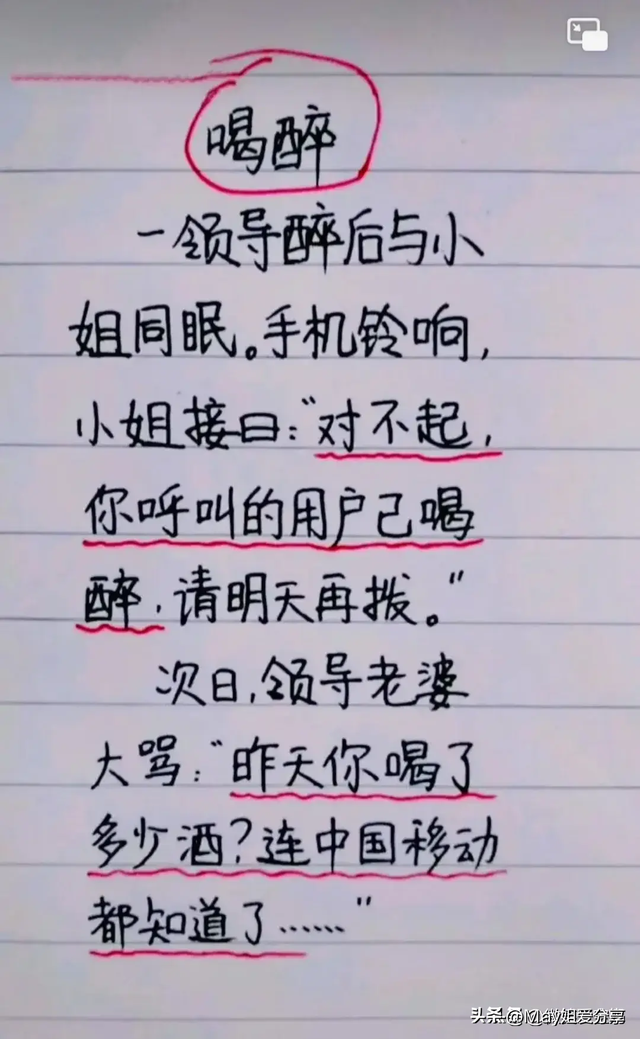 喝醉
一领导醉后与小
姐同眠。手机铃响,
小姐接曰:“对不起,
你呼叫的用户已喝
醉,请明天再拨。”
次日,领导老婆
大骂:“昨天你喝了
多少酒?连中国移动
都知道了……”